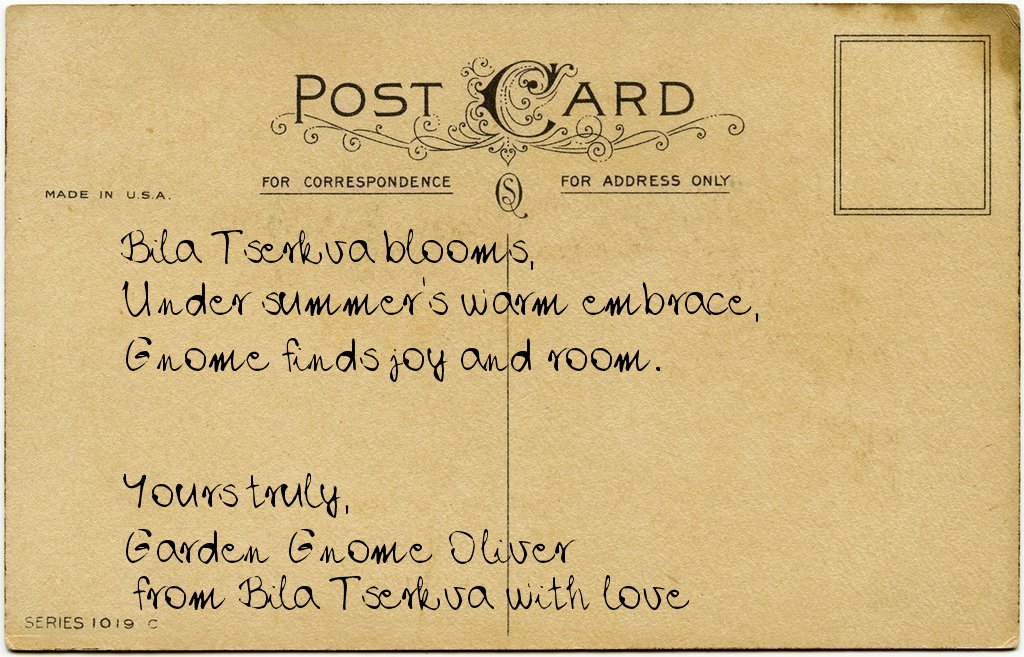 POST CARD
FOR CORRESPONDENCE
FOR ADDRESS ONLY
MADE IN U.S.A.
Bila Tserkva blooms,
Under summer's warm embrace,
Gnome finds joy and room.
Yours truly,
Garden Gnome Oliver
from Bila Tserkva with love
SERIES 1019 C